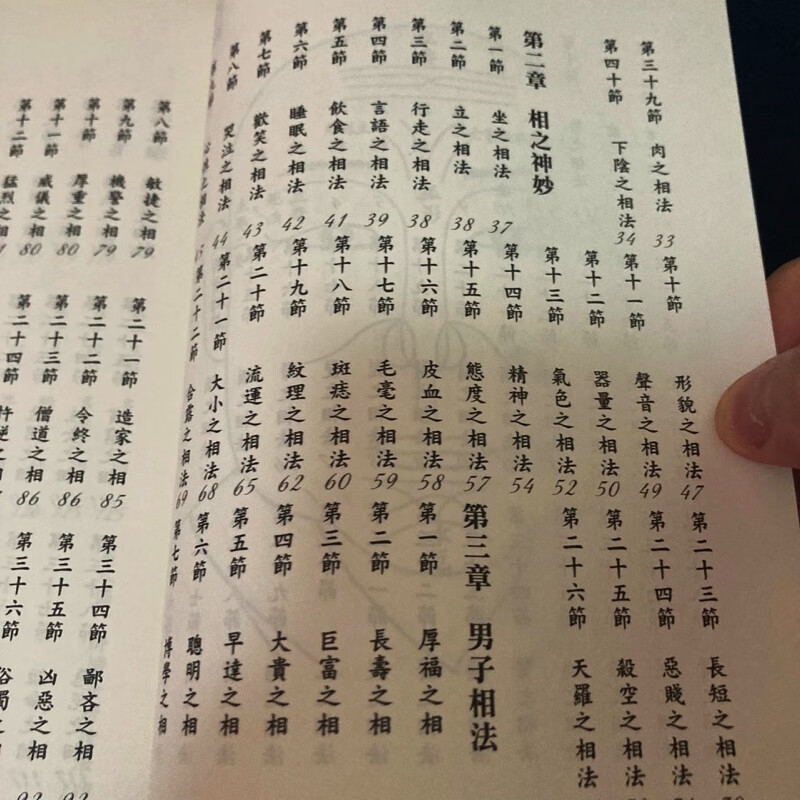 第三十九節 肉之相法 33
第四十節 下陰之相法 34
第二章 相之神妙
第一節 坐之相法 37
第二節 立之相法 38
第三節 行走之相法 38
第四節 言語之相法 39
第五節 飲食之相法 41
第六節 睡眠之相法 42
第七節 歡笑之相法 43
第八節 哭泣之相法 44
之相法
第十節 形貌之相法 47
第十一節 聲音之相法 49
第十二節 器量之相法 50
第十三節 氣色之相法 52
第十四節 精神之相法 54
第十五節 態度之相法 57
第十六節 皮血之相法 58
第十七節 毛毫之相法 59
第十八節 斑痣之相法 60
第十九節 紋理之相法 62
第二十節 流運之相法 65
第二十一節 大小之相法 68
第二十二節 之相法 69
第二十三節 長短之相法
第二十四節 惡賤之相法
第二十五節 殺空之相法
第二十六節 天羅之相法
第三章 男子相法
第一節 厚福之相
第二節 長壽之相
第三節 巨富之相
第四節 大貴之相
第五節 早達之相
第六節 聰明之相
第七節 博學之相
第八節 敏捷之相 79
第九節 機警之相 79
第十節 厚重之相 80
第十一節 威儀之相 80
第十二節 猛烈之相
第二十一節 造家之相 85
第二十二節 令終之相 86
第二十三節 僧道之相 86
第二十四節
第三十四節 鄙吝之相
第三十五節 凶惡之相
第三十六節